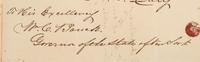 To His Excellency
W. C. Bouck
Governor of the State of New York